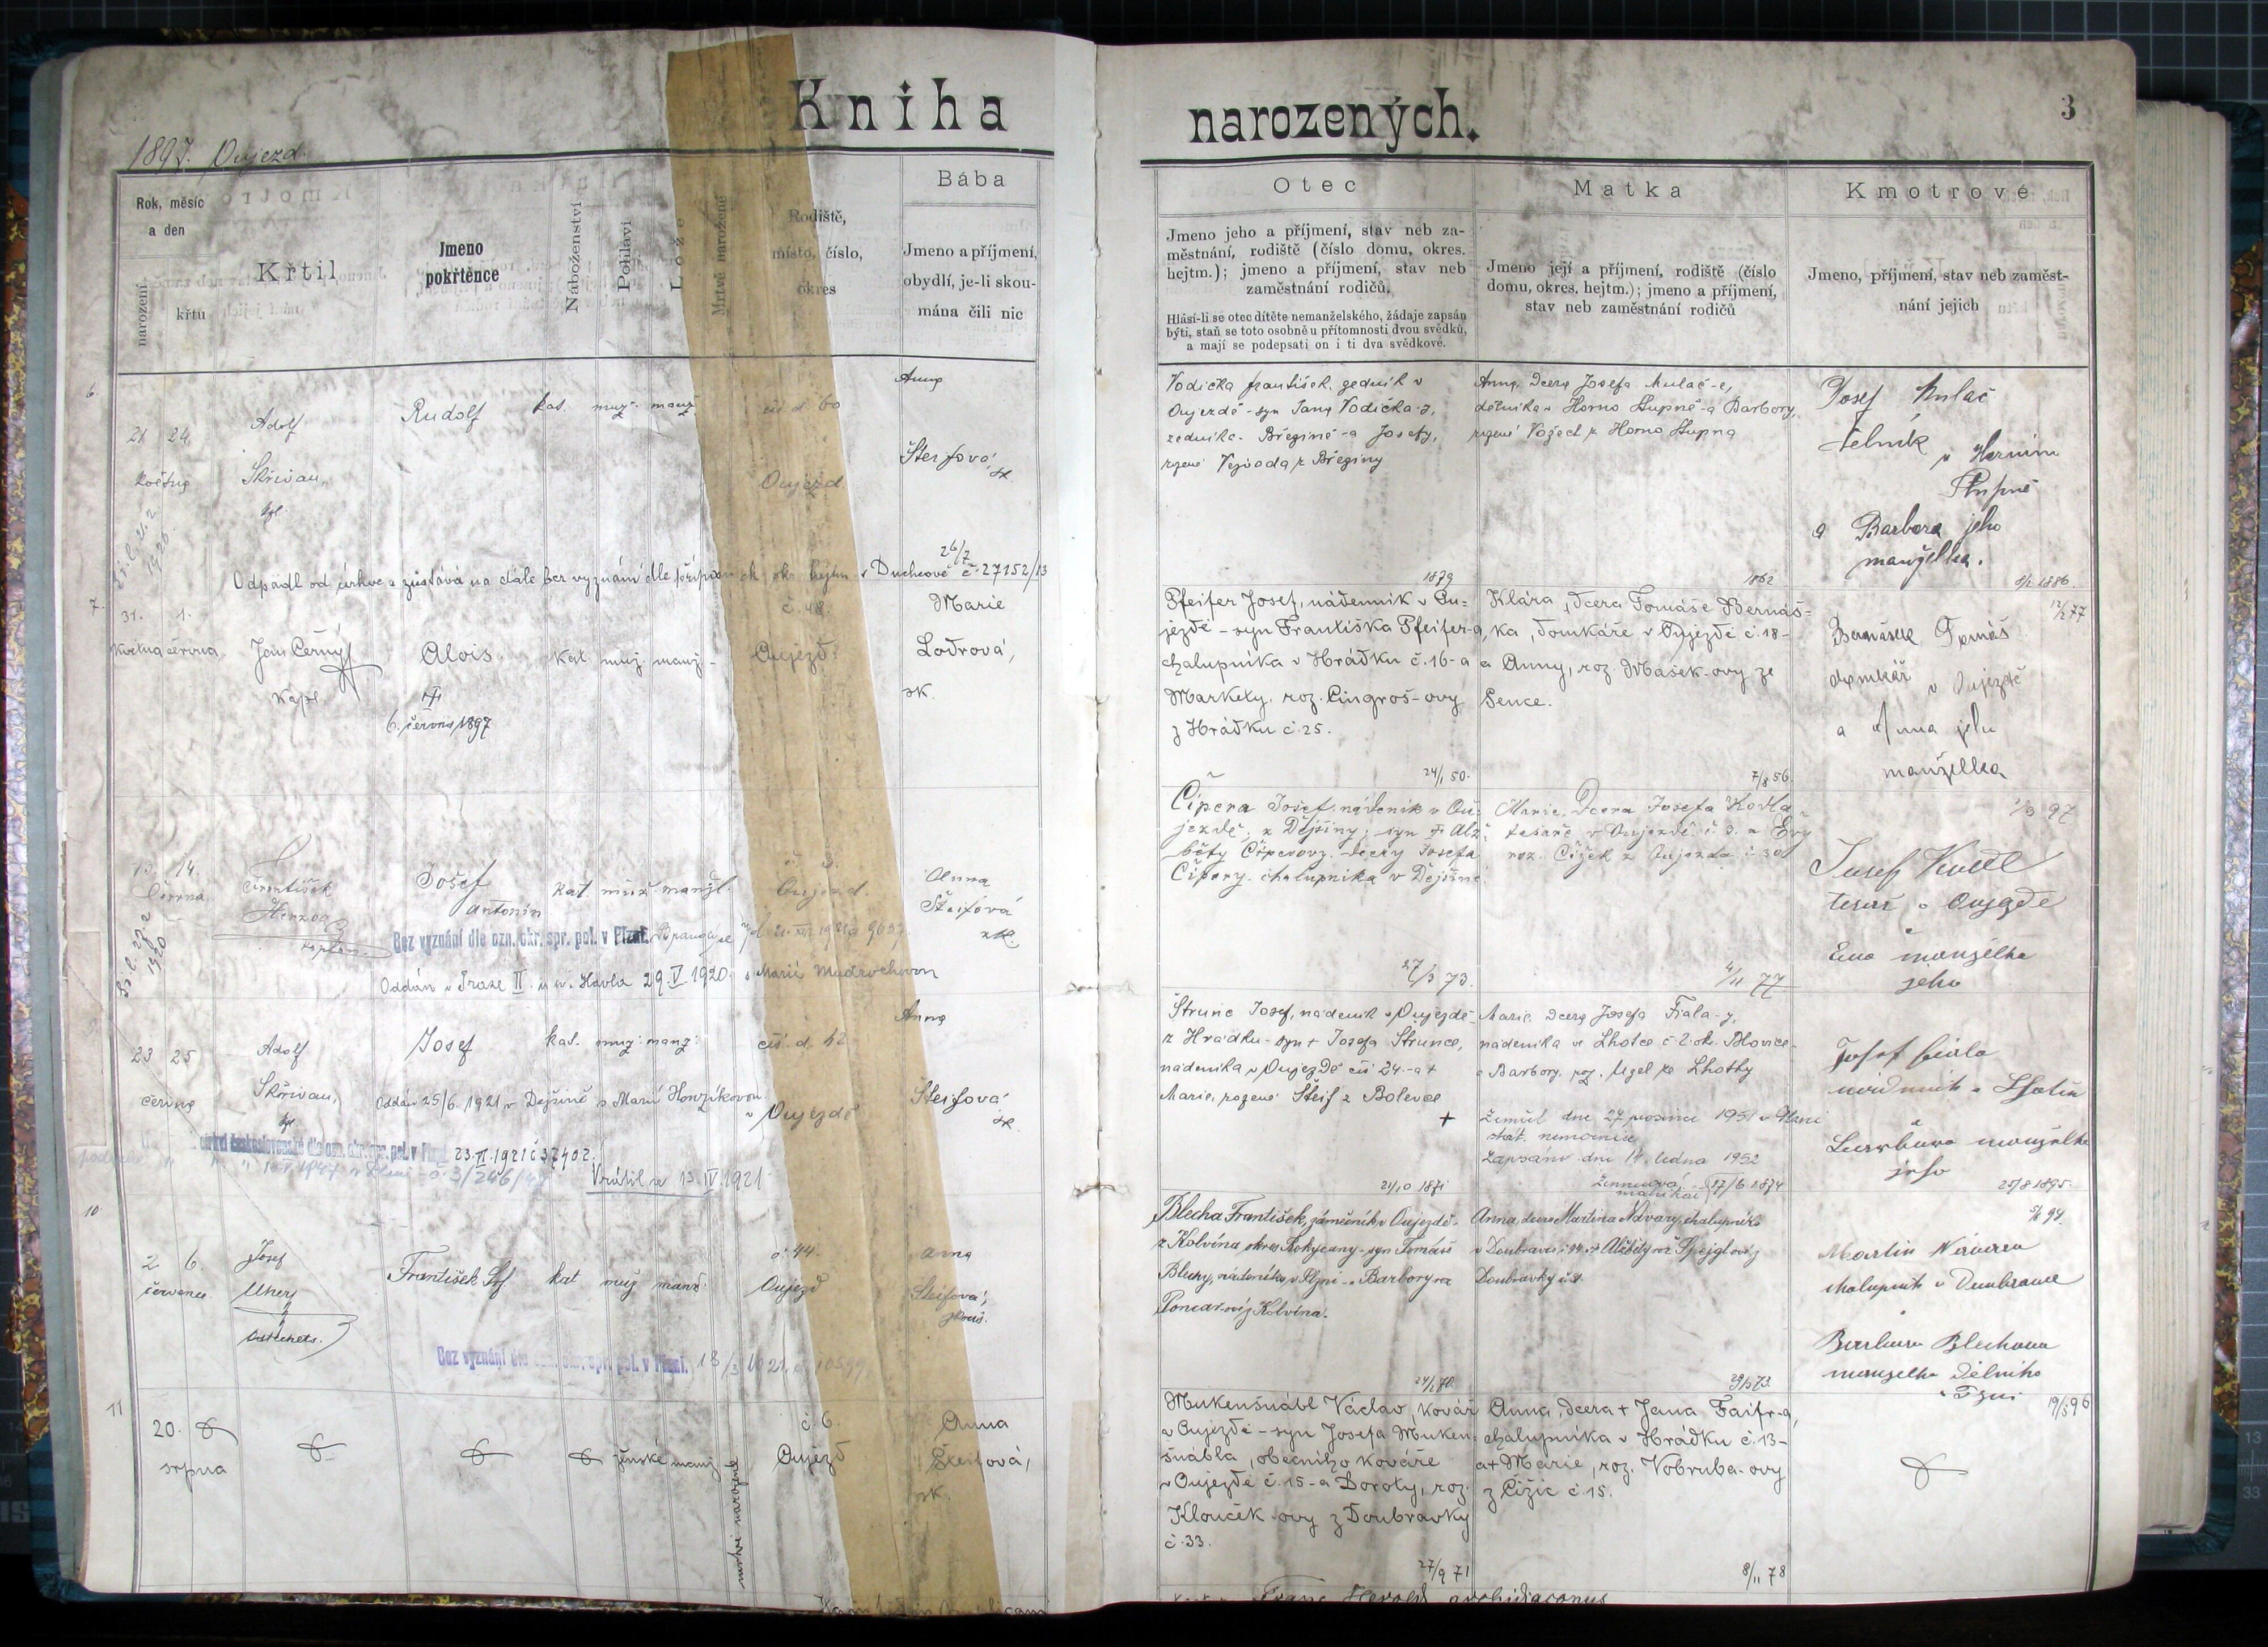 Kniha
narozených.
3
1897. Oujezd.
Rok, měsíc
a den
narození
křtu
Křtil
Jmeno
pokřtěnce
Náboženství
Pohlaví
Lože
Mrtvě narozené
Rodiště,
místo, číslo,
okres
Bába
Jmeno a příjmení,
obydlí, je-li skou-
mána čili nic
Otec
Jmeno jeho a příjmení, stav neb za-
městnání, rodiště (číslo domu, okres.
hejtm.); jmeno a příjmení, stav neb
zaměstnání rodičů.
Hlásí-li se otec dítěte nemanželského, žádaje zapsán
býti, staň se toto osobně u přítomnosti dvou svědků,
a mají se podepsati on i ti dva svědkové.
Matka
Jmeno její a příjmení, rodiště (číslo
domu, okres. hejtm.); jmeno a příjmení,
stav neb zaměstnání rodičů
Kmotrové
Jmeno, příjmení, stav neb zaměst-
nání jejich
6.
21 24
května
Adolf
Skřivan,
kpl
Rudolf
kat. muž. manž.
čís. d. 60
Oujezd
Anna
Šteifová
zk.
Vodička František, zedník v
Oujezdě - syn Jana Vodička-y,
zedníka - Březině - a Josefy,
rozené Vejvoda z Březiny
Anna, dcera Josefa Mulač-e,
dělníka v Horno Stupně - a Barbory,
rozené Vožech z Horno Stupna
Josef Mulač
dělník
v Horním
Stupně
a Barbora jeho
manželka.
Odpadl od církve a zůstává na dále bez vyznání dle přípisu ck. okr. hejtm. v Duchcově č. 27152/13
26/7
1879
1862
8/2 1886.
7.
31. 1.
května června
Jan Černý
kapl.
Alois.
6. června 1897
kat. muž. manž.
č. 48.
Oujezd.
Marie
Lodrová,
zk.
Pfeifer Josef, nádenník v Ou-
jezdě - syn Františka Pfeifer-a,
chalupníka v Hrádku č. 16 - a
Markety, roz. Cingroš-ovy
z Hrádku č. 25.
24/1 50.
Klára, dcera Tomáše Bernáš-
ka, domkáře v Oujezdě č. 18 -
a Anny, roz. Mašek-ovy ze
Sence.
7/8 56.
12/2 77
Bernášek Tomáš
domkář v Oujezdě
a Anna jeho
manželka
13. 14.
června
František
Herzog
kaplan
Josef
Antonín
kat. muž. manžl.
č. 3.
Oujezd.
Anna
Šteifová
zk.
Bez vyznání dle ozn. okr. spr. pol. v Plzni.
Oddán v Praze II. u sv. Havla 29. V. 1920. s Marií Mudrochovou
Čipera Josef, nádeník v Ou-
jezdě, z Dejšiny; syn † Alž-
běty Čiperovy, dcery Josefa
Čipery, chalupníka v Dejšině.
27/3 73.
Marie, dcera Josefa Kodla
tesaře v Oujezdě č. 3. a Evy
roz. Čížek z Oujezda č. 30
4/11 77
1/3 97
Josef Kodl
tesař v Oujezdě
a
Eva manželka
jeho
23 25
června
Adolf
Skřivan,
kpl.
Josef
kat. muž. manž.
čís. d. 42
v Oujezdě
Anna
Šteifová
zk.
Oddán 25/6. 1921 v Dejšině s Marií Honzíkovou
církvi československé dle ozn. okr. spr. pol. v Plzni 23. VI. 1921 č 37402.
Vrátil se 13. IV. 1921
Štrunc Josef, nádeník v Oujezdě -
z Hrádku - syn † Josefa Štrunce,
nádeníka v Oujezdě čís 24. - a †
Marie, rozené Šteif z Bolevce
21/10 1871
Marie, dcera Josefa Fiala-y,
nádeníka ve Lhotce č 2. okr. Blovice -
a Barbory, roz. Uzel ze Lhotky
+ Zemřel dne 27 prosince 1951 v Plzni
stát. nemocnice
Zapsáno dne 14. ledna 1952
17/6 1874
Josef Fiala
nádeník v Lhotě
a
Barbora manželka
jeho
25/8 1895.
10.
2. 6.
července
Josef
Uherý
František Srf
kat muž manž.
č. 44.
Oujezd
Anna
Šteifová,
zkouš.
Bez vyznání dle ozn. okr. spr. pol. v Plzni. 18/3 1921. č. 10599
Blecha František, zámečník v Oujezdě -
z Kolvína okres Rokycany - syn Tomáše
Blechy, nádeníka v Plzni - a Barbory roz
z Kolvína.
24/2 70.
Anna, dcera Martina Návary, chalupníka
v Doubravce č. 44. - a † Alžběty roz Špejgl-ovy z
Doubravky č. 9.
29/5 73.
5/6 94.
Martin Návara
chalupník v Doubravce
a
Barbora Blechova
manželka dělníka
v Plzni
11
20.
srpna
ženské manž.
mrtvě narozené
č. 6.
Oujezd
Anna
Šteifová,
zk.
Mukenšnábl Václav, kovář
v Oujezdě - syn Josefa Muken-
šnábla, obecního kováře
v Oujezdě č. 15 - a Doroty, roz.
Klouček-ovy z Doubravky
č. 33.
27/9 71
Anna, dcera † Jana Faifr-a,
chalupníka v Hrádku č. 13 -
a † Marie, roz. Vobruba-ovy
z Čížic č. 15.
8/11 78
19/5 96
Franc. Herold, archidiaconus